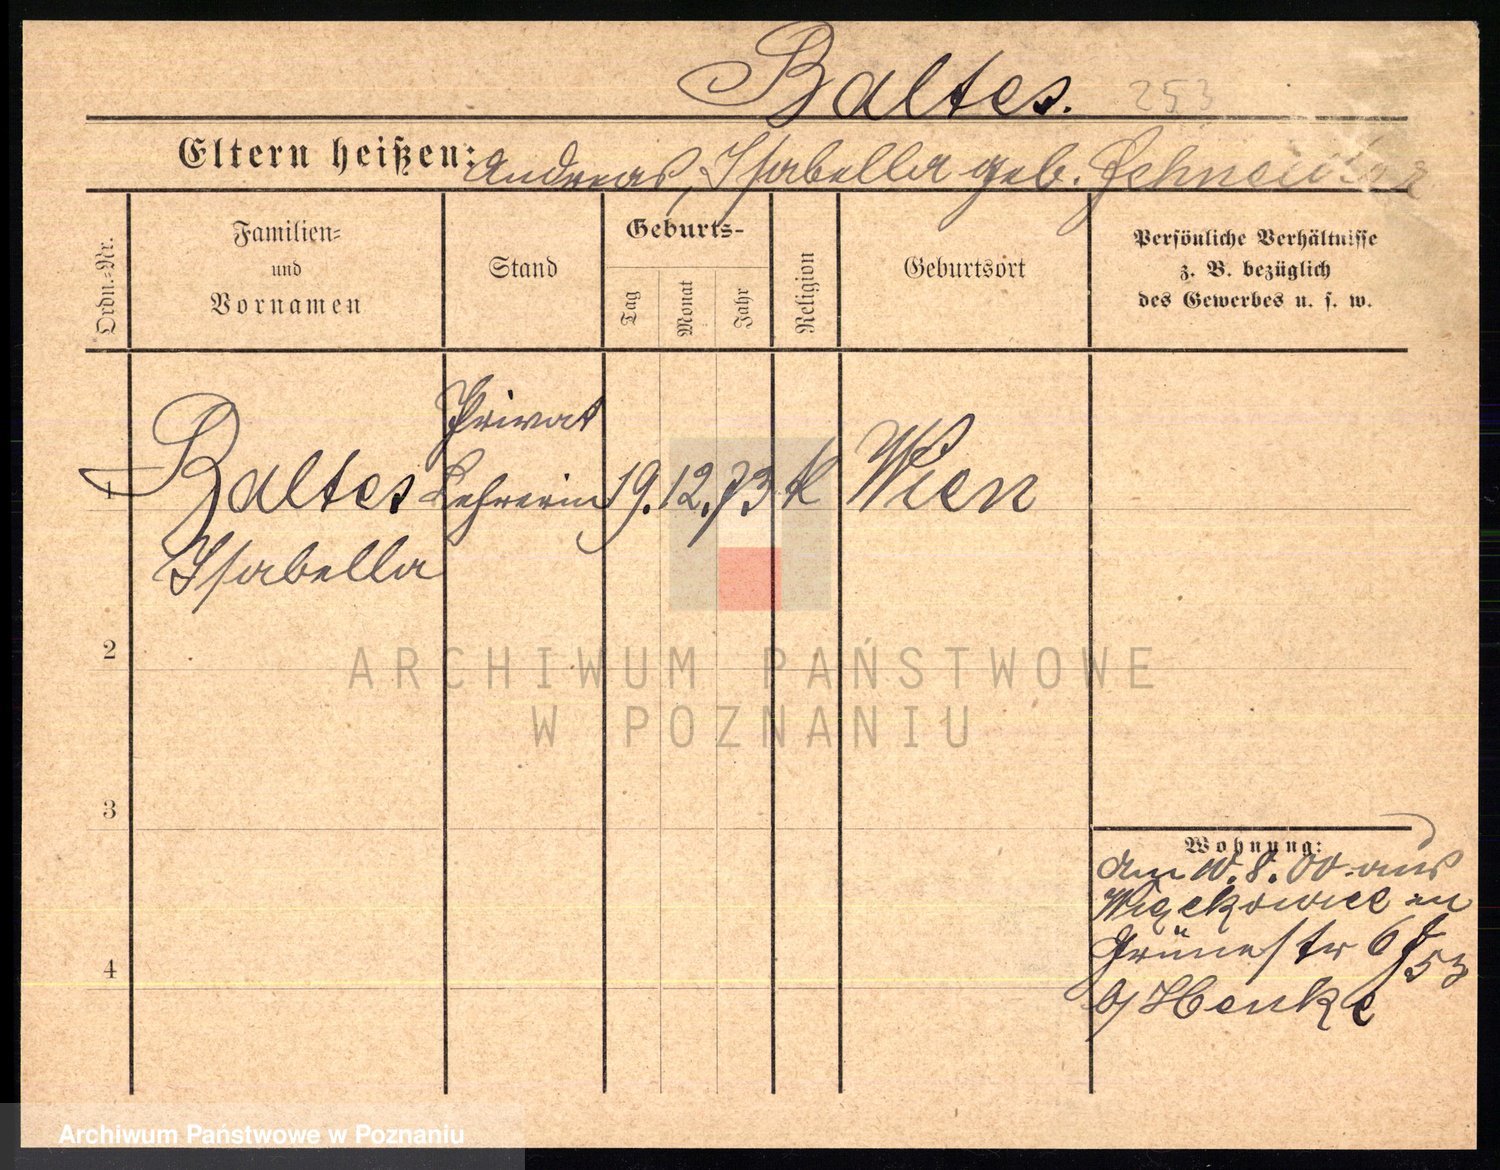 Baltes. 253
Eltern heißen: Andreas, Isabella geb. Schneider
Ordn.-Nr.
Familien-
und
Vornamen
Stand
Geburts-
Tag
Monat
Jahr
Religion
Geburtsort
Persönliche Verhältnisse
z. B. bezüglich
des Gewerbes u. s. w.
1
Baltes
Isabella
Privat
Lehrerin
19. 12. 73
k
Wien
2
ARCHIWUM PAŃSTWOWE
W POZNANIU
3
4
Wohnung:
am 10. 8. 00 aus
Więckowice in
Grünestr 6
b/ Henke
Archiwum Państwowe w Poznaniu